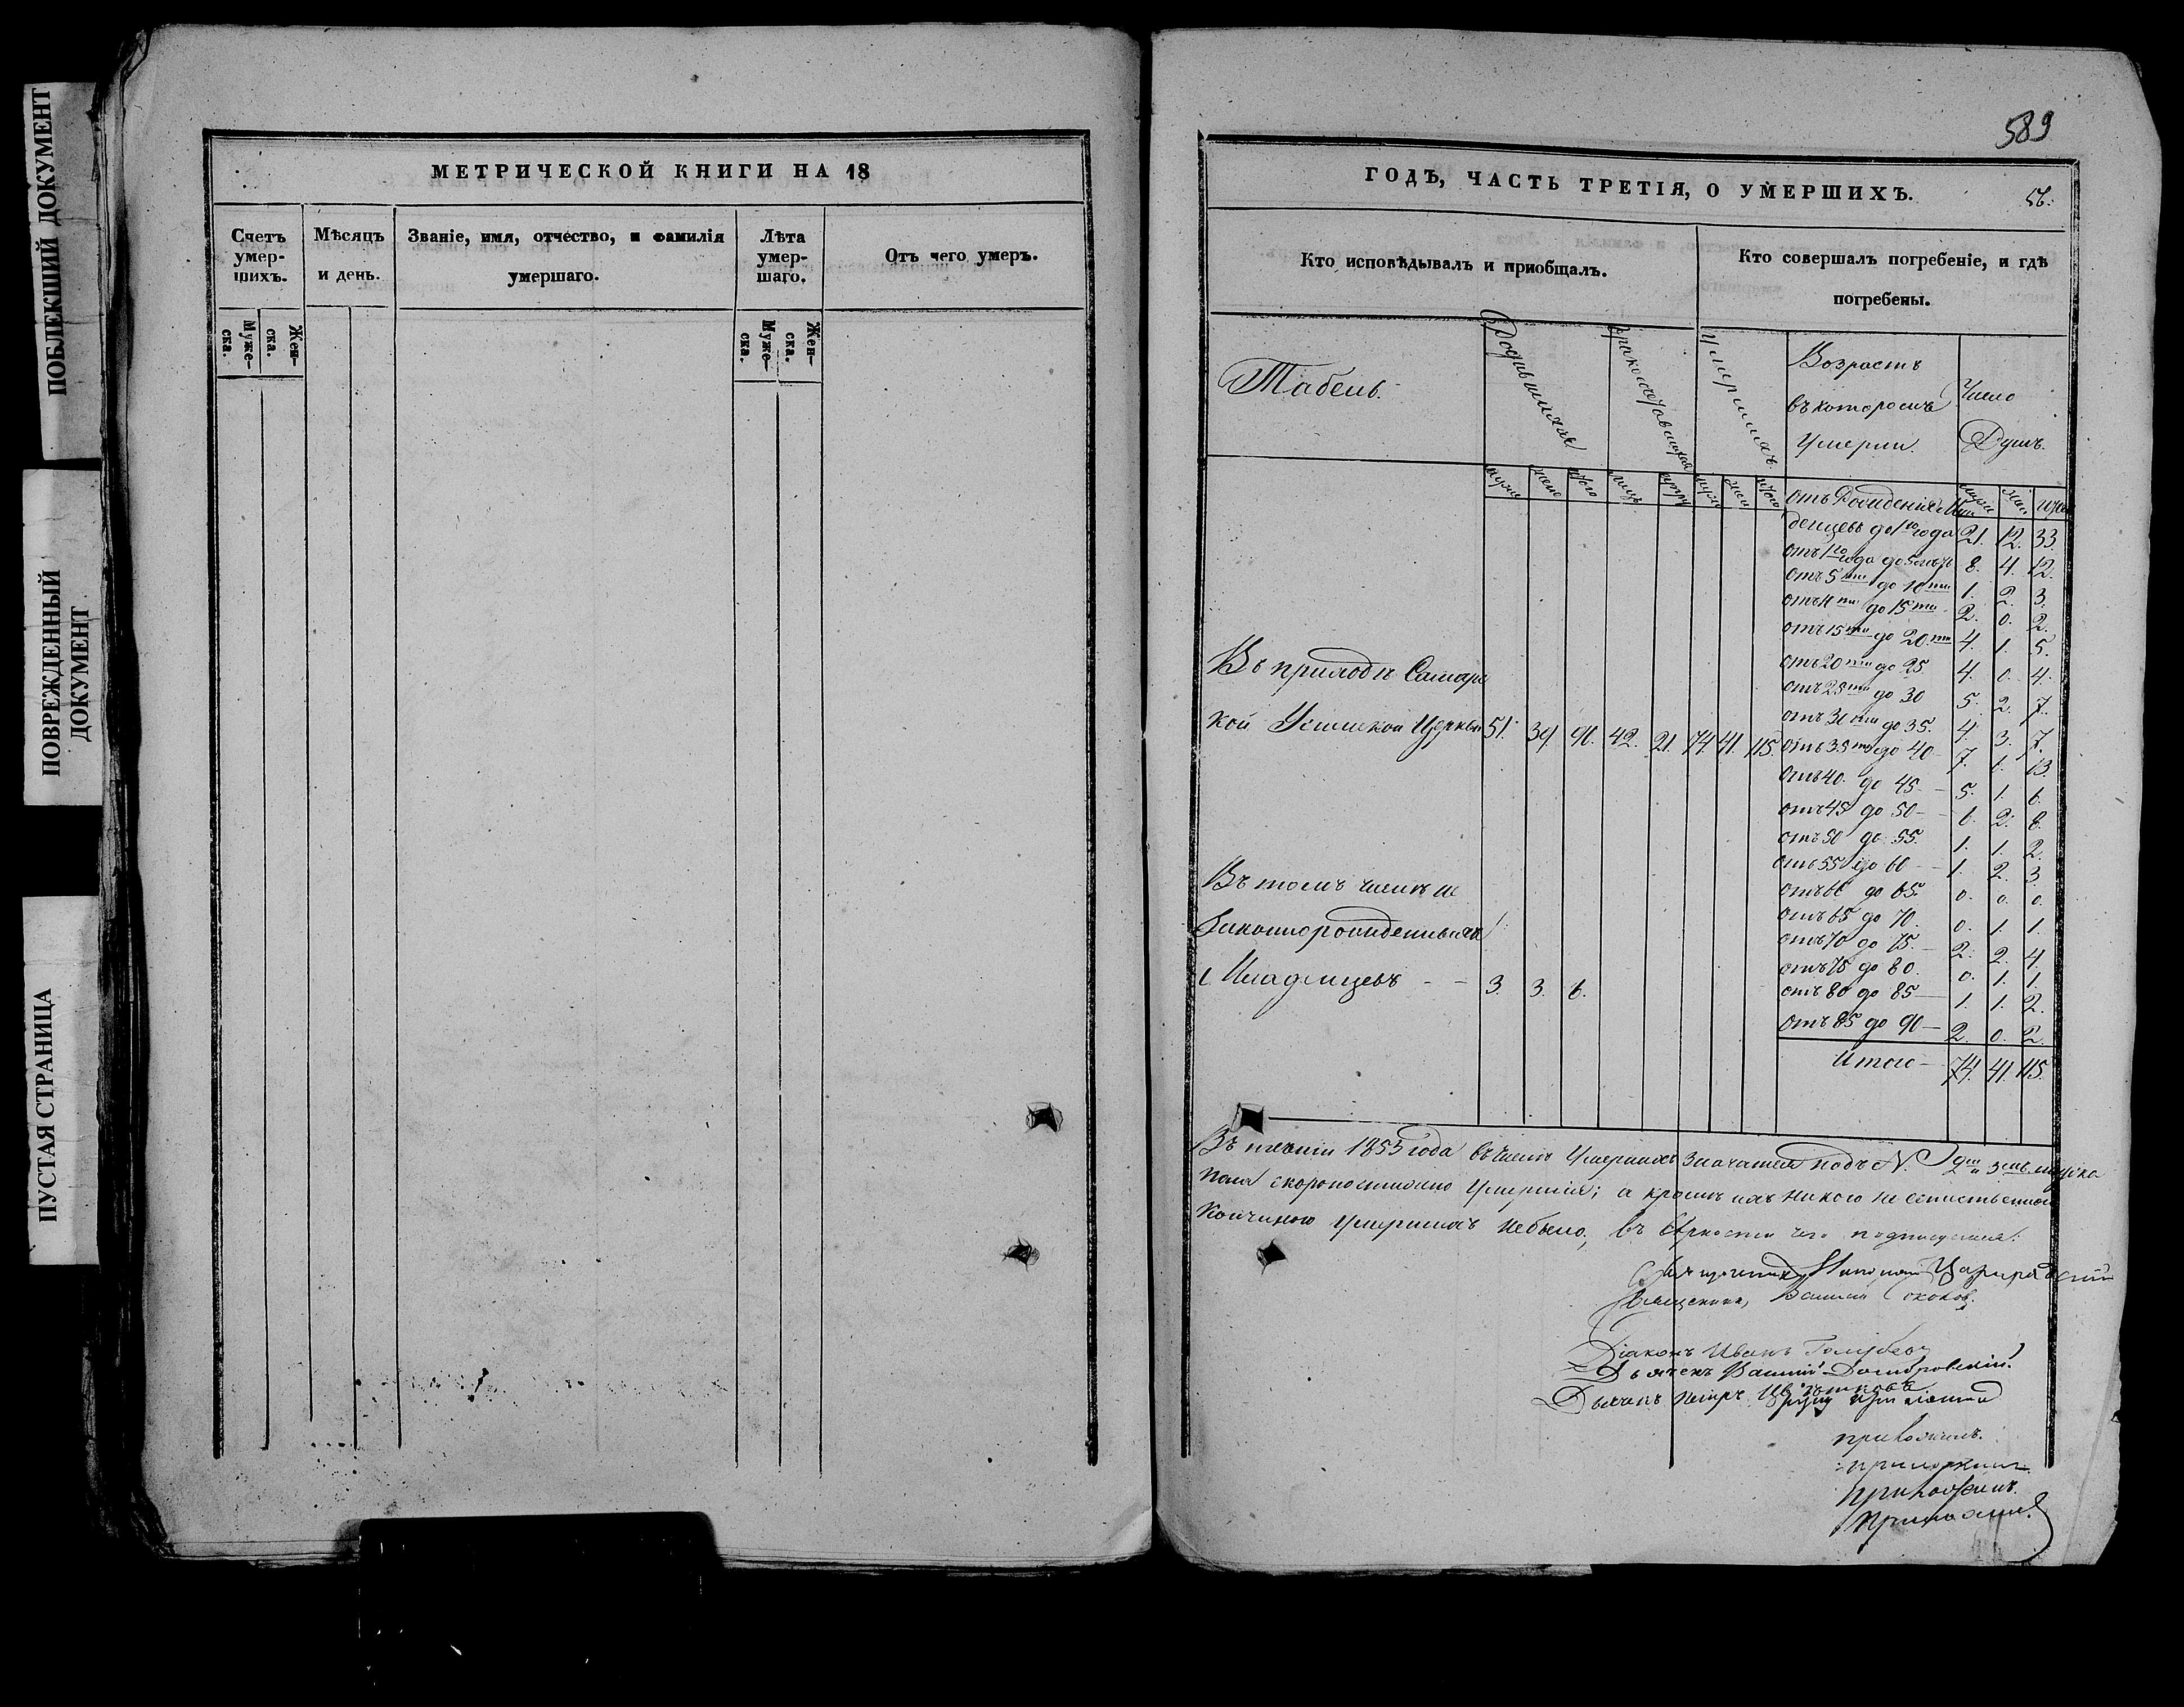 ПОБЛЕКШИЙ ДОКУМЕНТ
ПОВРЕЖДЕННЫЙ
ДОКУМЕНТ
ПУСТАЯ СТРАНИЦА
МЕТРИЧЕСКОЙ КНИГИ НА 18
Счетъ умер- шихъ.
Мѣсяцъ и день.
Званіе, имя, отчество, и фамилія умершаго.
Лѣта умер- шаго.
Отъ чего умеръ.
Муже- ска.
Жен- ска.
Муже- ска.
Жен- ска.
589
ГОДЪ, ЧАСТЬ ТРЕТІЯ, О УМЕРШИХЪ.
56.
Кто исповѣдывалъ и приобщалъ.
Кто совершалъ погребеніе, и гдѣ погребены.
Табель.
Родившихся
Бракосочетавшихся
Умершихъ
Возрастъ въ которомъ Умерли.
Число Душъ.
муж жен итого
муж жен итого
муж жен итого
отъ Рожденія Мла
денцевъ до 1го года 21. 12. 33.
отъ 1го года до 5 лѣтъ 8. 4. 12.
отъ 5ти до 10ти 1. 2. 3.
до 15ти 2. 0. 2.
отъ 15ти до 20ти 4. 1. 5.
отъ 20ти до 25 4. 0. 4.
отъ 25ти до 30 5. 2. 7.
отъ 30ти до 35. 4. 3. 7.
отъ 35ти до 40 7. 1. 13.
отъ 40. до 45 5. 1. 6.
отъ 45 до 50 6. 2. 8.
отъ 50 до 55. 1. 1. 2.
отъ 55 до 60 1. 2. 3.
отъ 60 до 65. 0. 0. 0.
отъ 65 до 70 0. 1. 1.
отъ 70 до 75. 2. 2. 4.
отъ 75 до 80. 0. 1. 1.
отъ 80 до 85 1. 1. 2.
отъ 85 до 90 2. 0. 2.
Итого 74. 41. 115.
Въ приходѣ Самарс
кой Успенской Церкви 51. 39. 90. 42. 21. 74. 41. 115.
Въ томъ числѣ не
законнорожденныхъ
Младенцевъ 3. 3. 6.
1855 года въ числѣ Умершихъ Значатся подъ N.
пола скоропостижно Умершія; а кромѣ ихъ никого не естественною
Кончиною Умершихъ небыло; въ вѣрности чего подписуемся:
Священникъ
Священникъ Василій Соколовъ.
Діаконъ Иванъ Голубевъ
Дьячекъ Василій Домбровскій.
Дьячекъ Петръ Цвѣтковъ